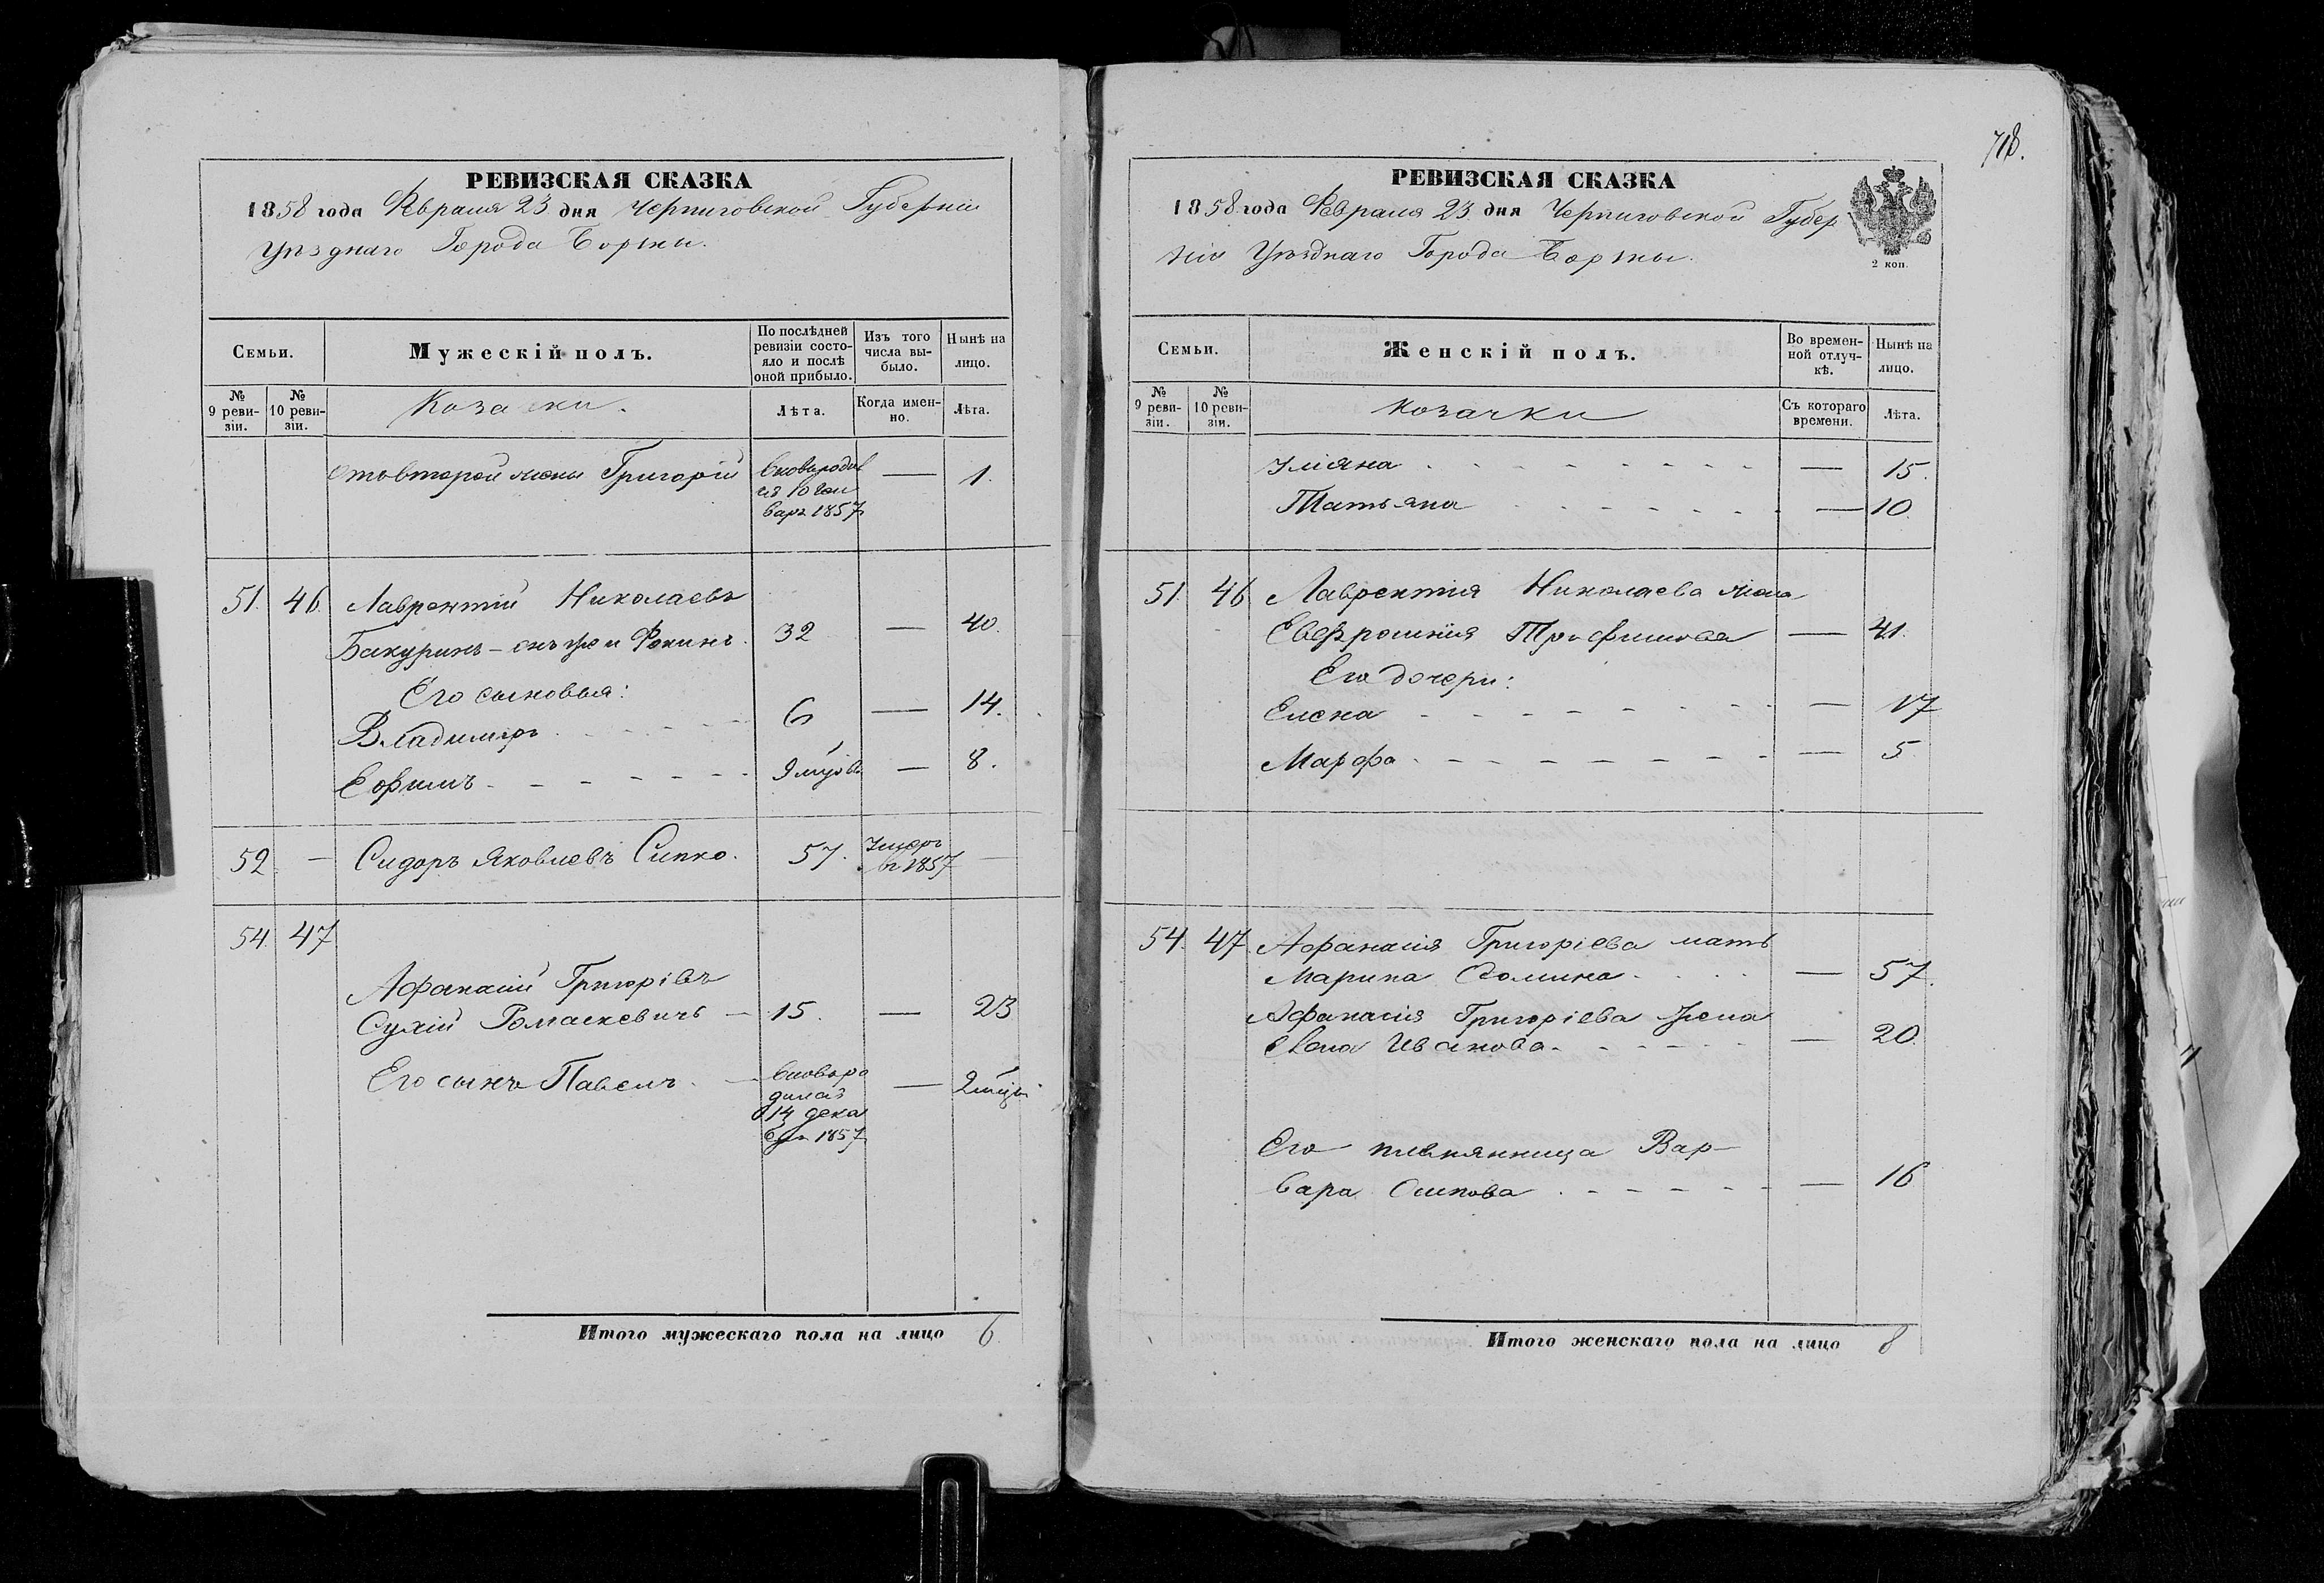 718.
РЕВИЗСКАЯ СКАЗКА
1858 года Февраля 23 дня Черниговской Губерніи
Уѣзднаго Города Борзны.
Семьи.
Мужескій полъ.
По послѣдней ревизіи состо-
яло и послѣ
оной прибыло.
Изъ того
числа вы-
было.
Нынѣ на
лицо.
№
9 реви-
зіи.
№
10 реви-
зіи.
Козаки.
Лѣта.
Когда имен-
но.
Лѣта.
отъ второй жены Григорій
вновь родив
ся 10 Ген
варя 1857
—
1.
51. 46. Лаврентій Николаевъ
Бакуринъ — онъ же и 32 — 40.
Его сыновья:
Владимиръ 6 — 14.
Ефимъ 9 — 8.
52. — Сидоръ Яковлевъ Сипко. 57. Умеръ
въ 1857 —
54. 47
Афанасий Григорiевъ
Сухій Ромаскевичъ — 15. — 23
Его сынъ Павелъ. — вновь ро
дился
14 дека
бря 1857
—
2 мцы
Итого мужескаго пола на лицо 6.
РЕВИЗСКАЯ СКАЗКА
1858 года Февраля 23 дня Черниговской Губер
ніи Уѣзднаго Города Борзны.
2 коп.
Семьи.
Женскій полъ.
Во времен-
ной отлуч-
кѣ.
Нынѣ на
лицо.
№
9 реви-
зіи.
№
10 реви-
зіи.
козачки
Съ котораго
времени.
Лѣта.
Уліяна — 15.
Татьяна — 10.
51. 46 Лаврентія Николаева жена
Евфросинія Трофимова — 41.
Его дочери:
Елена — 17
Марфа — 5
54. 47. Афанасія Григоріева мать
Марина Фомина — 57.
Афанасія Григоріева жена
Анна Иванова — 20.
Его племянница Вар-
вара Осипова — 16
Итого женскаго пола на лицо 8